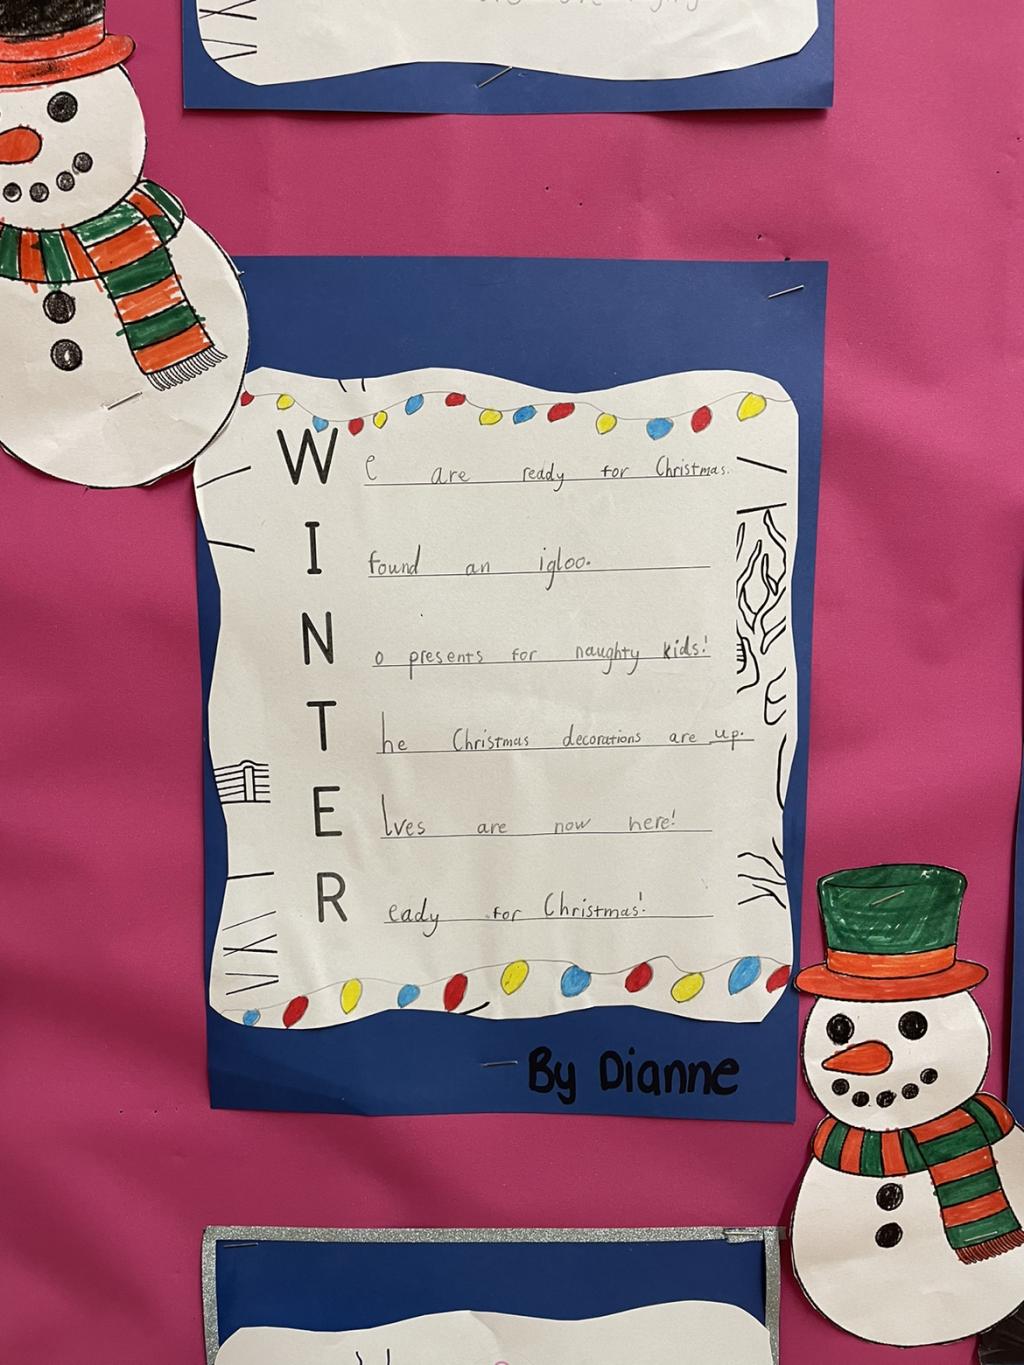 We are ready for Christmas.
I found an igloo.
No presents for naughty kids!
The Christmas decorations are up.
Elves are now here!
Ready for Christmas!
By Dianne